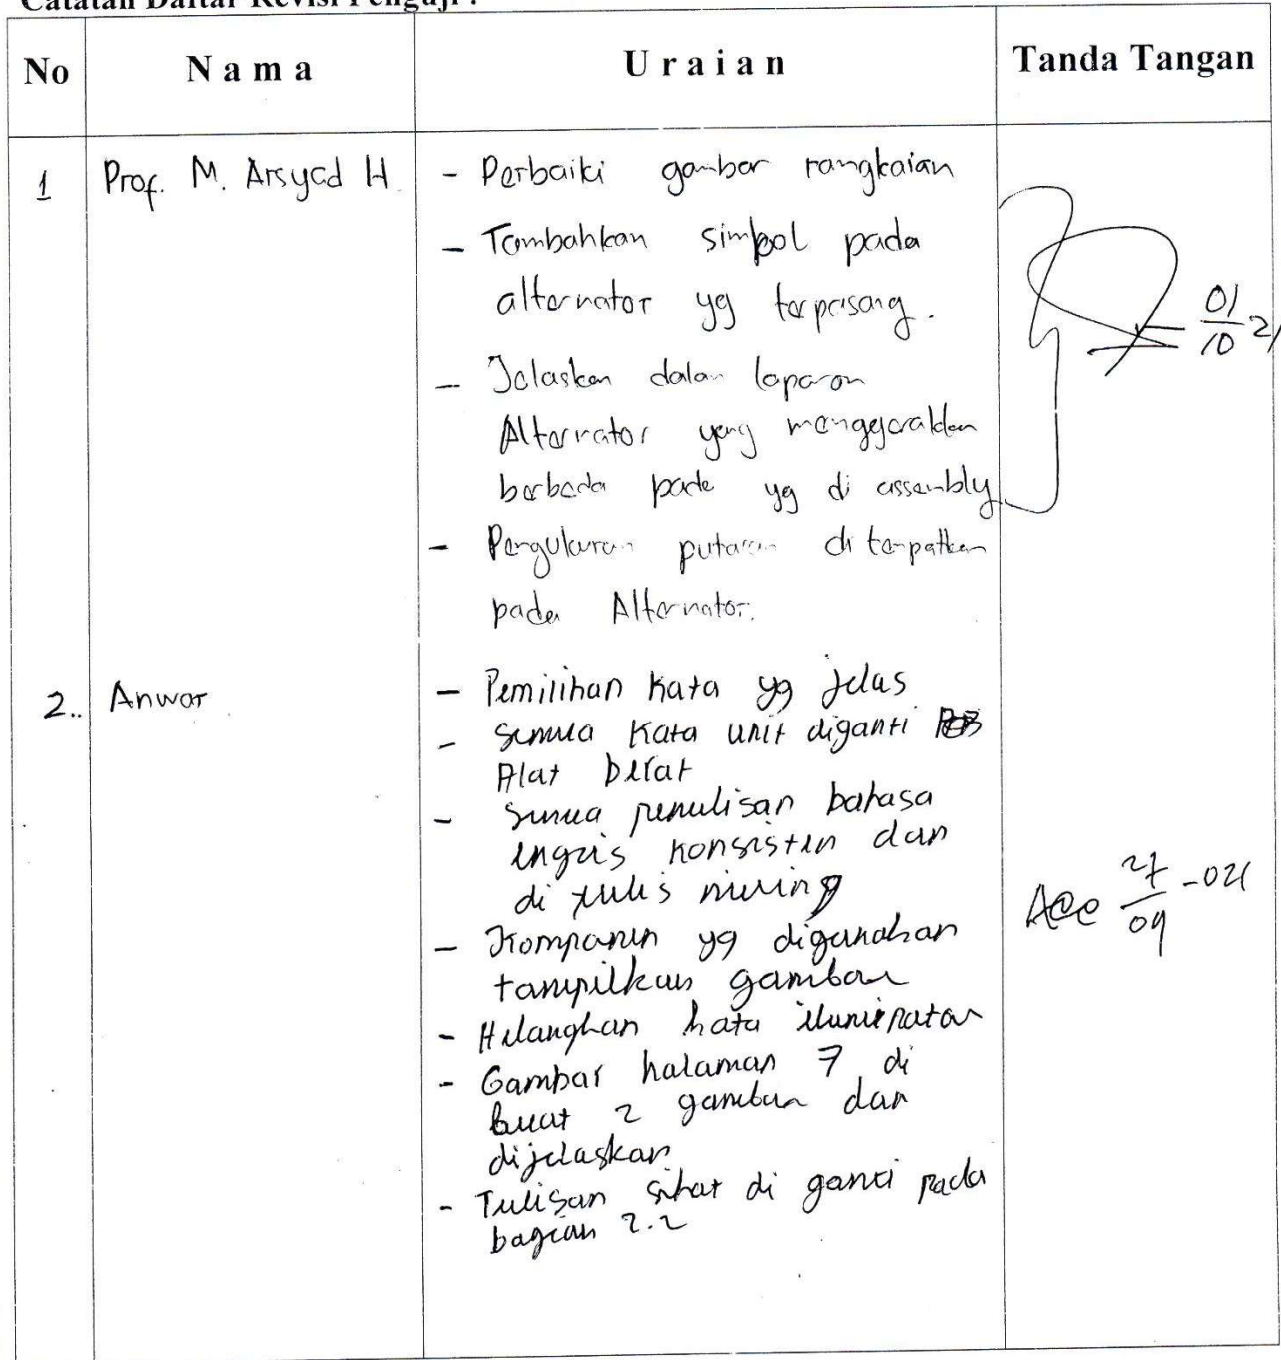 Catatan Daftar Revisi Penguji :
No
Nama
Uraian
Tanda Tangan
1
Prof. M. Arsyad H.
- Perbaiki gambar rangkaian
- Tambahkan simbol pada
alternator yg terpasang.
- Jelaskan dalam laporan
Alternator yang menggerakkan
berbeda pada yg di assembly
- Pengukuran putaran di tempatkan
pada Alternator.
01/10 21
2..
Anwar
- Pemilihan kata yg jelas
- Semua kata unit diganti
Alat berat
- Semua penulisan bahasa
ingris konsisten dan
di tulis miring
- Komponen yg digunakan
tampilkan gambar
- Hilangkan kata
- Gambar halaman 7 di
buat 2 gambar dan
dijelaskan
- Tulisan di ganti pada
bagian 2.2
Acc 27/09 -021